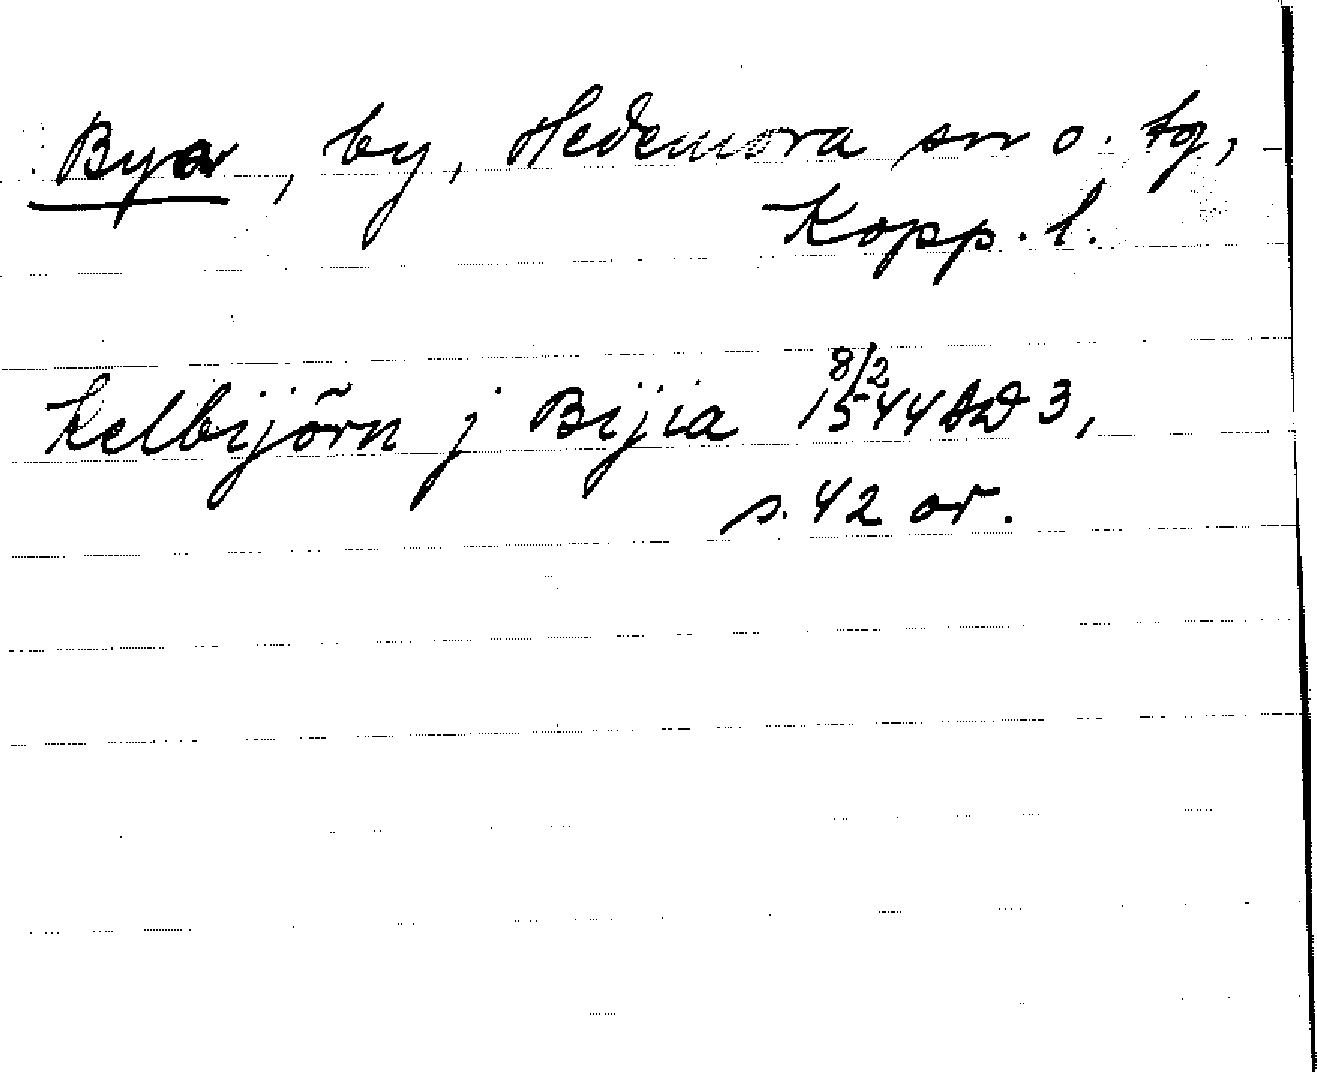 Bya, by, Hedemora sn o. tg,
Kopp. l.
Kelbijörn j Bijia 8/2 1544 AD 3,
s. 42 or.